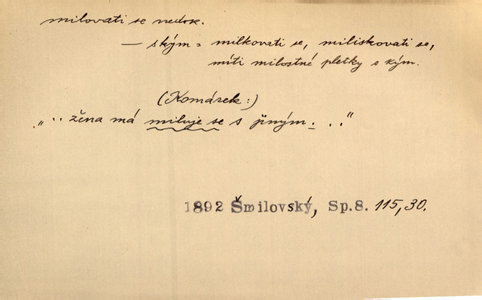 milovati se nedok.
— s kým = milkovati se, miliskovati se,
míti milostné pletky s kým.
(Komárek:)
„ ·· žena má miluje se s jiným. . ."
1892 Šmilovský, Sp.8. 115,30.